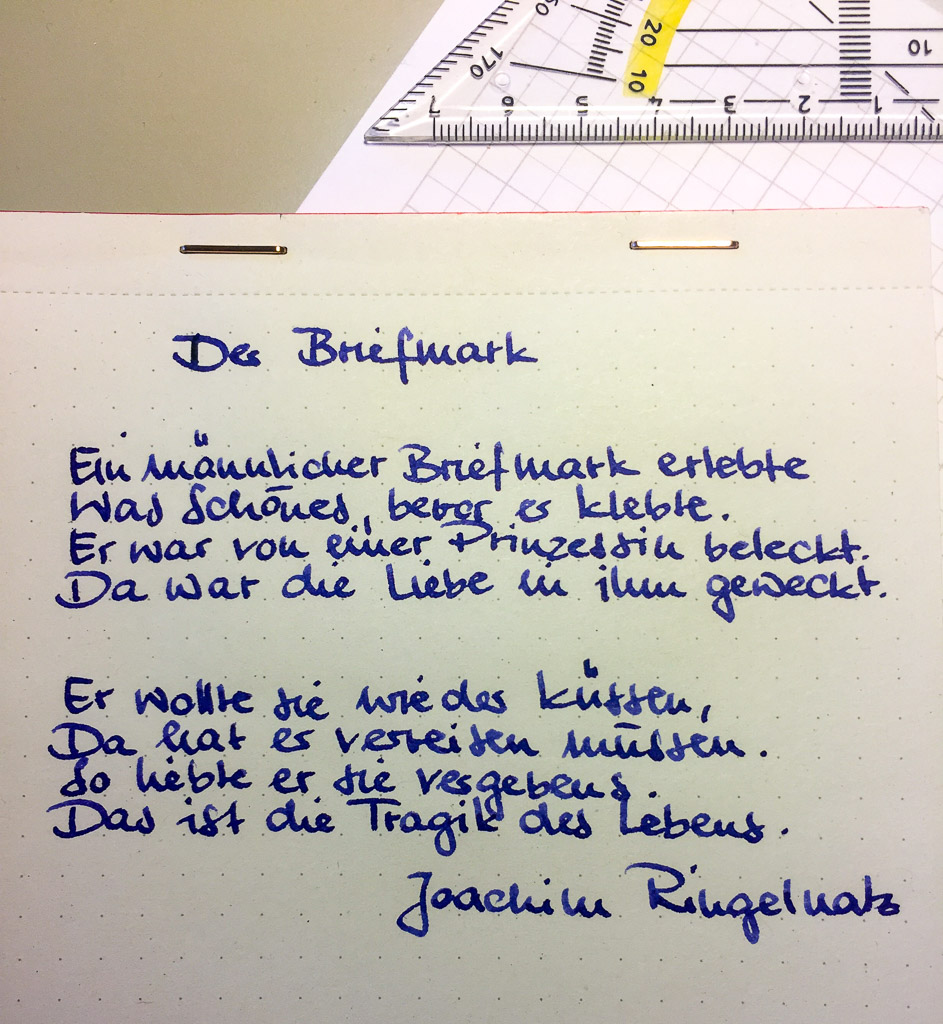 50 20 10
170 10
7 6 5 4 3 2 1
Der Briefmark
Ein männlicher Briefmark erlebte
Was Schönes, bevor er klebte.
Er war von einer Prinzessin beleckt.
Da war die Liebe in ihm geweckt.
Er wollte sie wieder küssen,
Da hat er verreisen müssen.
So liebte er sie vergebens.
Das ist die Tragik des Lebens.
Joachim Ringelnatz